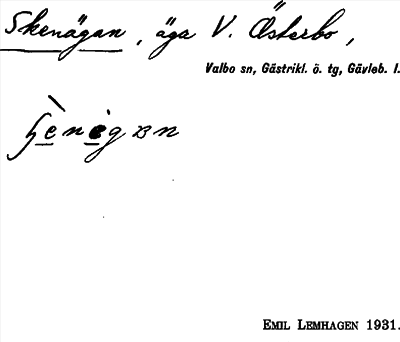 Skenägan, äga V. Österbo,
Valbo sn, Gästrikl. ö. tg, Gävleb. l.
EMIL LEMHAGEN 1931.